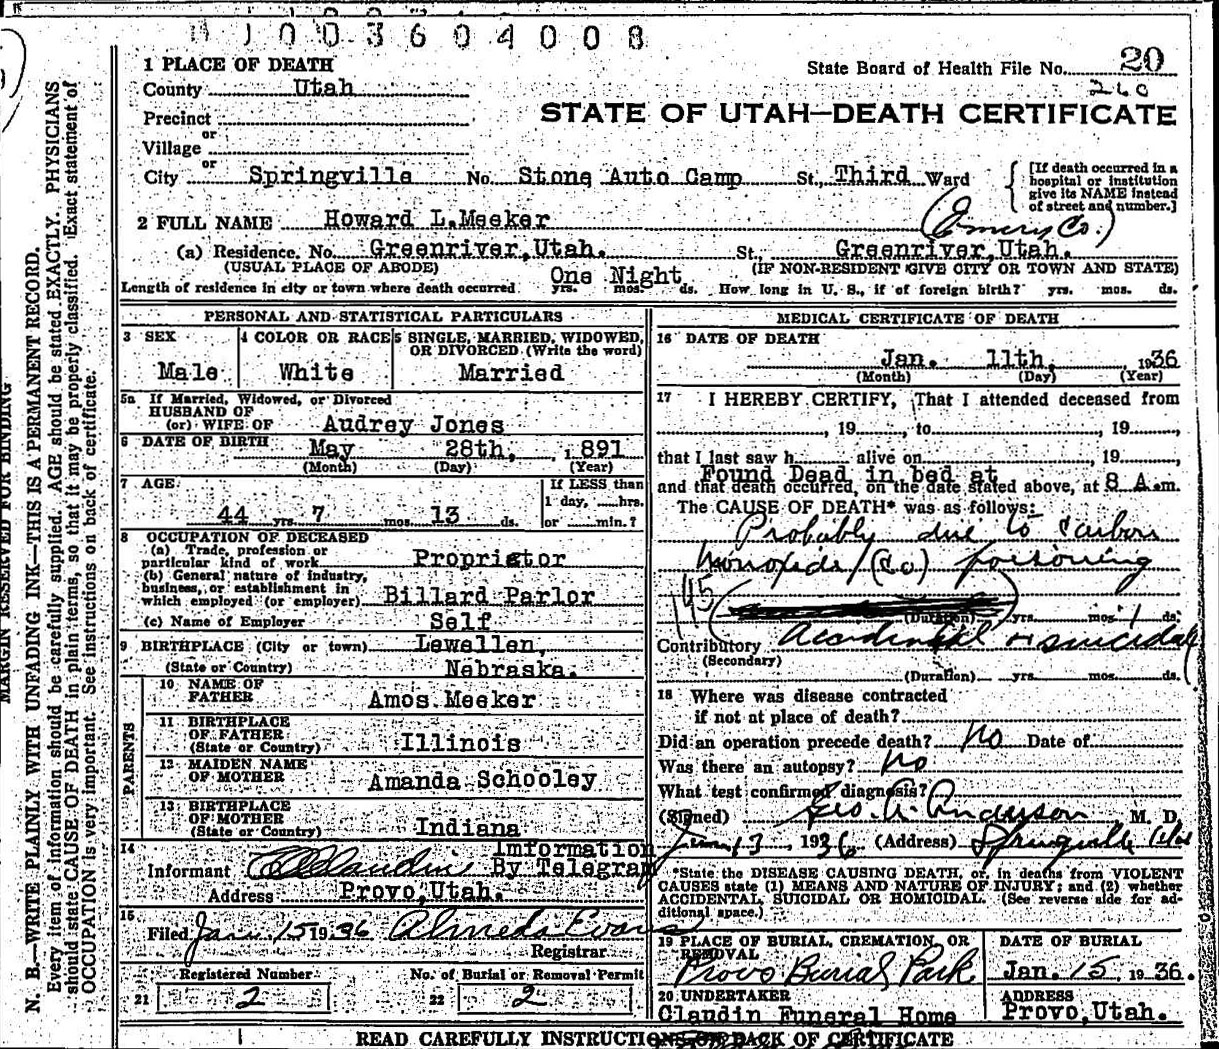 1003604008
1 PLACE OF DEATH
State Board of Health File No. 20
County Utah
260
STATE OF UTAH—DEATH CERTIFICATE
Precinct
or
Village
or
City Springville No. Stone Auto Camp St., Third Ward
[If death occurred in a hospital or institution give its NAME instead of street and number.]
2 FULL NAME Howard L.Meeker
(Emery Co.)
(a) Residence. No. Greenriver,Utah. St., Greenriver,Utah.
(USUAL PLACE OF ABODE) (IF NON-RESIDENT GIVE CITY OR TOWN AND STATE)
One Night
Length of residence in city or town where death occurred yrs. mos. ds. How long in U. S., if of foreign birth? yrs. mos. ds.
PERSONAL AND STATISTICAL PARTICULARS
3 SEX
Male
4 COLOR OR RACE
White
5 SINGLE, MARRIED, WIDOWED, OR DIVORCED (Write the word)
Married
5a If Married, Widowed, or Divorced
HUSBAND OF
(or) WIFE OF Audrey Jones
6 DATE OF BIRTH May 28th, 1891
(Month) (Day) (Year)
7 AGE
44 yrs. 7 mos. 13 ds.
If LESS than
1 day, hrs.
or min.?
8 OCCUPATION OF DECEASED
(a) Trade, profession or
particular kind of work Propristor
(b) General nature of industry,
business, or establishment in
which employed (or employer) Billard Parlor
(c) Name of Employer Self
9 BIRTHPLACE (City or town) Lewellen,
(State or Country) Nebraska.
PARENTS
10 NAME OF
FATHER Amos Meeker
11 BIRTHPLACE
OF FATHER
(State or Country) Illinois
12 MAIDEN NAME
OF MOTHER Amanda Schooley
13 BIRTHPLACE
OF MOTHER
(State or Country) Indiana
14
Imformation
Informant Claudin By Telegram
Address Provo,Utah.
15
Filed Jan. 15 1936 Almeda Evans
Registrar
Registered Number No. of Burial or Removal Permit
21 2 22 2
MEDICAL CERTIFICATE OF DEATH
16 DATE OF DEATH
Jan. 11th, 1936
(Month) (Day) (Year)
17 I HEREBY CERTIFY, That I attended deceased from
, 19 , to , 19 ,
that I last saw h alive on , 19 ,
Found Dead in bed at
and that death occurred, on the date stated above, at 8 A.m.
The CAUSE OF DEATH* was as follows:
Probably due to carbon
monoxide (Co) poisoning
145
(Duration) yrs. mos. 1 ds.
Contributory Accidental or suicidal
(Secondary)
(Duration) yrs. mos. ds.
18 Where was disease contracted
if not at place of death?
Did an operation precede death? No Date of
Was there an autopsy? No
What test confirmed diagnosis?
(Signed) Geo. A. Anderson M. D.
Jan 13 1936 (Address) Springville Utah
*State the DISEASE CAUSING DEATH, or, in deaths from VIOLENT
CAUSES state (1) MEANS AND NATURE OF INJURY; and (2) whether
ACCIDENTAL, SUICIDAL OR HOMICIDAL. (See reverse side for ad-
ditional space.)
19 PLACE OF BURIAL, CREMATION, OR
REMOVAL
Provo Burial Park
DATE OF BURIAL
Jan. 15 1936.
20 UNDERTAKER
Claudin Funeral Home
ADDRESS
Provo,Utah.
READ CAREFULLY INSTRUCTIONS ON BACK OF CERTIFICATE
MARGIN RESERVED FOR BINDING
N. B.—WRITE PLAINLY WITH UNFADING INK—THIS IS A PERMANENT RECORD.
Every item of information should be carefully supplied. AGE should be stated EXACTLY. PHYSICIANS
should state CAUSE OF DEATH in plain terms, so that it may be properly classified. Exact statement of
OCCUPATION is very important. See instructions on back of certificate.